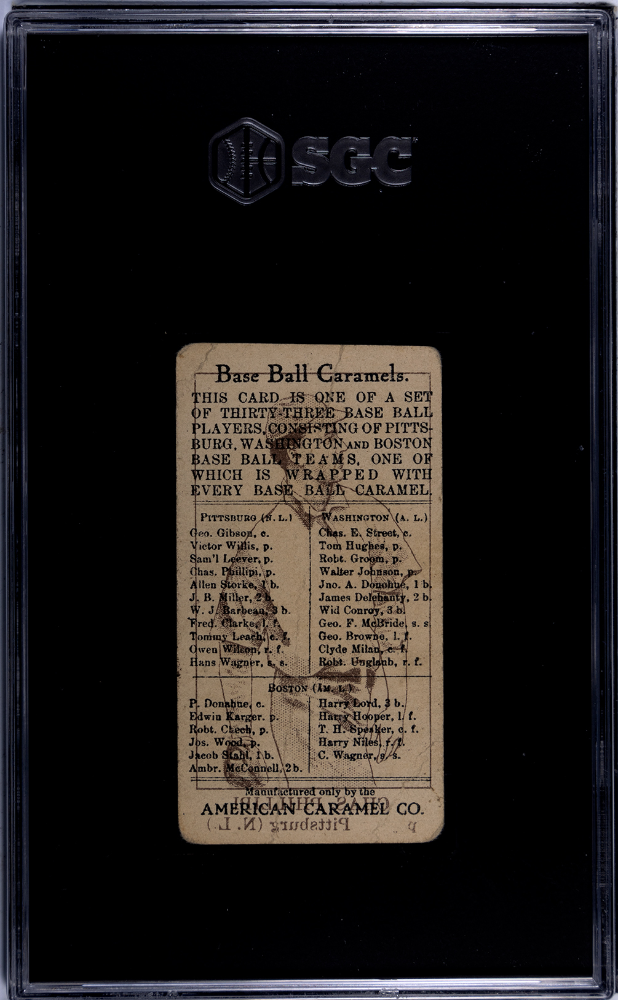 SGC
Base Ball Caramels.
THIS CARD IS ONE OF A SET
OF THIRTY-THREE BASE BALL
PLAYERS, CONSISTING OF PITTS-
BURG, WASHINGTON AND BOSTON
BASE BALL TEAMS, ONE OF
WHICH IS WRAPPED WITH
EVERY BASE BALL CARAMEL.
PITTSBURG (N. L.)
Geo. Gibson, c.
Victor Willis, p.
Sam'l Leever, p.
Chas. Phillipi, p.
Allen Storke, 1 b.
J. B. Miller, 2 b.
W. J. Barbeau, 3 b.
Fred. Clarke, l. f.
Tommy Leach, c. f.
Owen Wilson, r. f.
Hans Wagner, s. s.
WASHINGTON (A. L.)
Chas. E. Street, c.
Tom Hughes, p.
Robt. Groom, p.
Walter Johnson, p.
Jno. A. Donohue, 1 b.
James Delehanty, 2 b.
Wid Conroy, 3 b.
Geo. F. McBride, s. s.
Geo. Browne, l. f.
Clyde Milan, c. f.
Robt. Unglaub, r. f.
BOSTON (AM. L.)
P. Donahue, c.
Edwin Karger. p.
Robt. Chech, p.
Jos. Wood, p.
Jacob Stahl, 1 b.
Ambr. McConnell, 2 b.
Harry Lord, 3 b.
Harry Hooper, l. f.
T. H. Speaker, c. f.
Harry Niles, r. f.
C. Wagner, s. s.
Manufactured only by the
AMERICAN CARAMEL CO.
CHAS. PHILLIPI
p Pittsburg (N. L.)